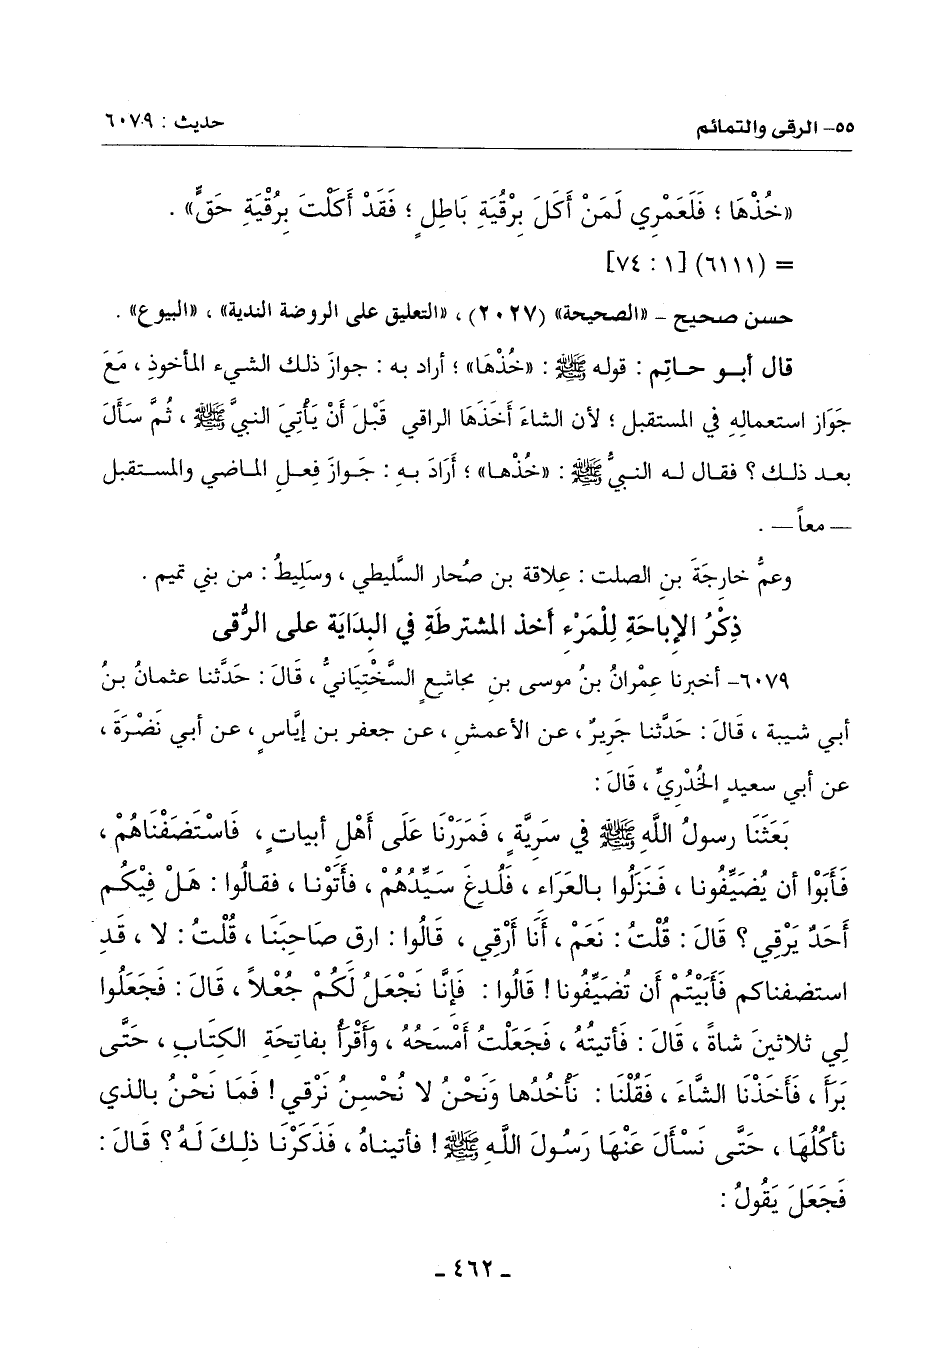 ٥٥- الرقى والتمائم حديث : ٦٠٧٩
«خُذْهَا ؛ فَلَعَمْرِي لَمَنْ أَكَلَ بِرُقْيَةِ بَاطِلٍ ؛ فَقَدْ أَكَلْتَ بِرُقْيَةِ حَقٍّ» .
= (٦١١١) [١ : ٧٤]
حسن صحيح – «الصحيحة» (٢٠٢٧) ، «التعليق على الروضة الندية» ، «البيوع» .
قال أبو حاتِم : قوله ﷺ : «خُذْهَا» ؛ أراد به : جوازَ ذلك الشيء المأخوذِ ، مَعَ
جَوَاز استعمالِهِ في المستقبل ؛ لأن الشاءَ أَخَذَهَا الراقي قَبْلَ أَنْ يَأْتِيَ النبيَّ ﷺ ، ثُمَّ سَأَلَ
بعد ذلك ؟ فقال له النبيُّ ﷺ : «خُذْها» ؛ أَرَادَ بِهِ : جوازَ فِعلِ الماضي والمستقبل
— معاً — .
وعمُّ خارجةَ بن الصلت : عِلاقة بن صُحار السَّليطي ، وسَلِيطُ : من بني تميم .
ذِكْرُ الإباحَةِ لِلْمَرْءِ أَخذ المشترطَةِ في البدَايَة على الرُّقى
٦٠٧٩- أخبرنا عِمْرانُ بنُ موسى بنِ مجاشعٍ السَّخْتِيَانيُّ ، قَالَ : حَدَّثنا عثمانُ بنُ
أبي شيبة ، قَالَ : حَدَّثنا جَرِيرٌ ، عن الأعمشِ ، عن جعفر بن إيَّاسٍ ، عن أبي نَضْرَةَ ،
عن أبي سعيدٍ الخُدْرِيِّ ، قَالَ :
بَعَثَنَا رسولُ اللَّهِ ﷺ في سَرِيَّةٍ ، فَمَرَرْنَا عَلَى أَهْلِ أبياتٍ ، فَاسْتَضَفْنَاهُمْ ،
فَأَبَوْا أن يُضَيِّفُونا ، فَنَزَلُوا بالعَرَاء ، فَلُدغَ سَيِّدُهُمْ ، فأَتَوْنا ، فقالُوا : هَلْ فِيْكُم
أَحَدٌ يَرْقِي ؟ قَالَ : قُلْتُ : نَعَمْ ، أَنا أَرْقِي ، قَالُوا : ارقِ صَاحِبَنَا ، قُلْتُ : لا ، قَدِ
استضفناكم فَأَبَيْتُمْ أن تُضَيِّفُونا ! قَالُوا : فَإِنَّا نَجْعَلُ لَكُمْ جُعْلاً ، قَالَ : فَجَعَلُوا
لِي ثلاثينَ شاةً ، قَالَ : فَأَتيتُهُ ، فَجَعَلْتُ أَمْسَحُهُ ، وَأَقْرَأُ بفاتِحَةِ الكِتَابِ ، حَتَّى
بَرَأَ ، فَأَخَذْنَا الشَّاءَ ، فَقُلْنَا : نَأْخُذُها وَنَحْنُ لا نُحْسِنُ نَرْقي ! فَمَا نَحْنُ بالذي
نأكُلُهَا ، حَتَّى نَسْأَلَ عَنْهَا رَسُولَ اللَّهِ ﷺ ! فأتيناهُ ، فَذَكَرْنا ذلِكَ لَهُ ؟ قَالَ :
فَجَعَلَ يَقُولُ :
ـ ٤٦٢ ـ